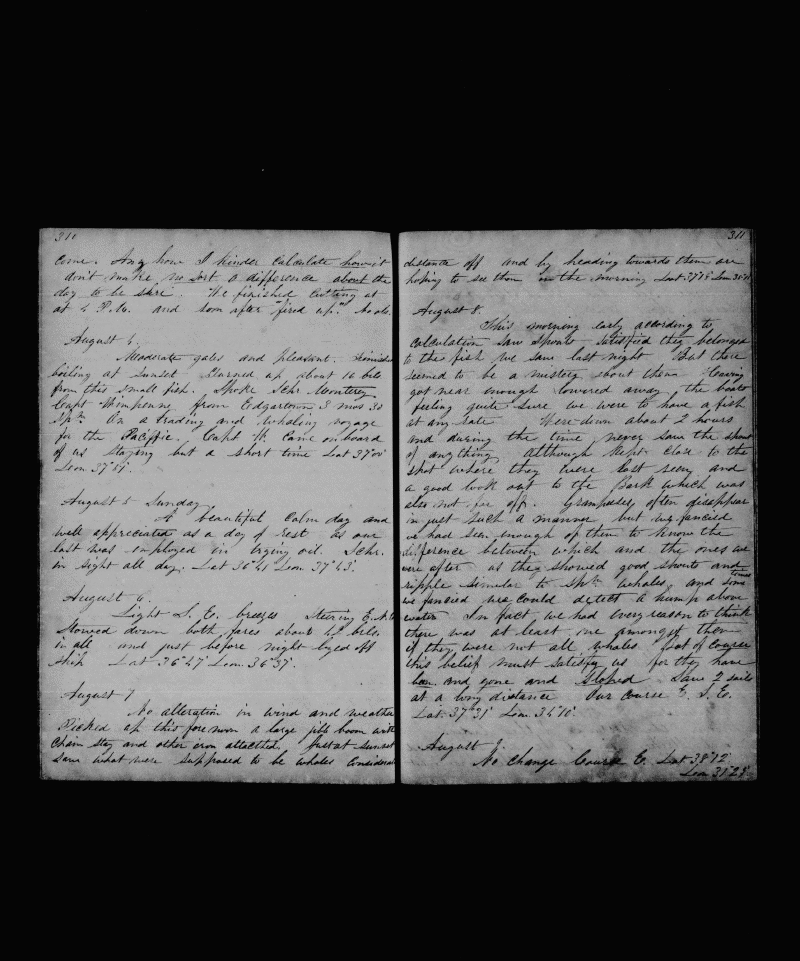 310
come. Any how I kinder calculate how it
don't make no sort o difference about the
day to be sure. We finished cutting at
at 4 P.M. and soon after "fired up". No obs.
August 4.
Moderate gales and pleasant. Finished
boiling at Sunset. Turned up about 16 bbls
from this small fish. Spoke Schr. Monterey
Capt Wimpenny from Edgartown 3 mos 30
Spm. On a trading and Whaling voyage
for the Paciffic. Capt W. Came on board
of us staying but a short time Lat 37°00'
Lon 37°
August 5 Sunday
A beautiful Calm day and
well appreciated as a day of rest as our
last was employed in trying oil. Schr.
in sight all day. Lat 36°41 Lon. 37°43'.
August 6.
Light S. E. breezes Steering E.
Stowed down both fares about bbls.
in all and just before night off
ship Lat 36°47' Lon. 36°37'.
August 7
No alteration in wind and weather
Picked up this forenoon a large jib boom with
Chain stay and other iron attatched. Just at sunset
saw what were supposed to be whales considerable
311
distance off and by heading towards them are
hoping to see them in the morning Lat 37°19' Lon
August 8.
This morning early according to
Calculation saw Spouts satisfied they belonged
to the fish we saw last night But there
seemed to be a mistery about them Having
got near enough lowered away the boats
feeling quite sure we were to have a fish
at any rate Were down about 2 hours
and during the time never saw the spout
of anything although kept close to the
spot where they were last seen and
a good look out to the Bark which was
also not far off. Grampuses often disappear
in just such a manner but we fancied
we had seen enough of them to know the
difference between which and the ones we
were after as they showed good spouts and
ripple similar to Spm whales and some times
we fancied we could detect a hump above
water In fact we had every reason to think
there was at least one amongst them
if they were not all whales but of course
this belief must satisfy us for they have
been and gone and Sloped Saw 2 sails
at a long distance Our Course E. S. E.
Lat. 37°31' Lon. 34°10'.
August 9.
No Change Course E. Lat 38°12'
Lon 31°23'